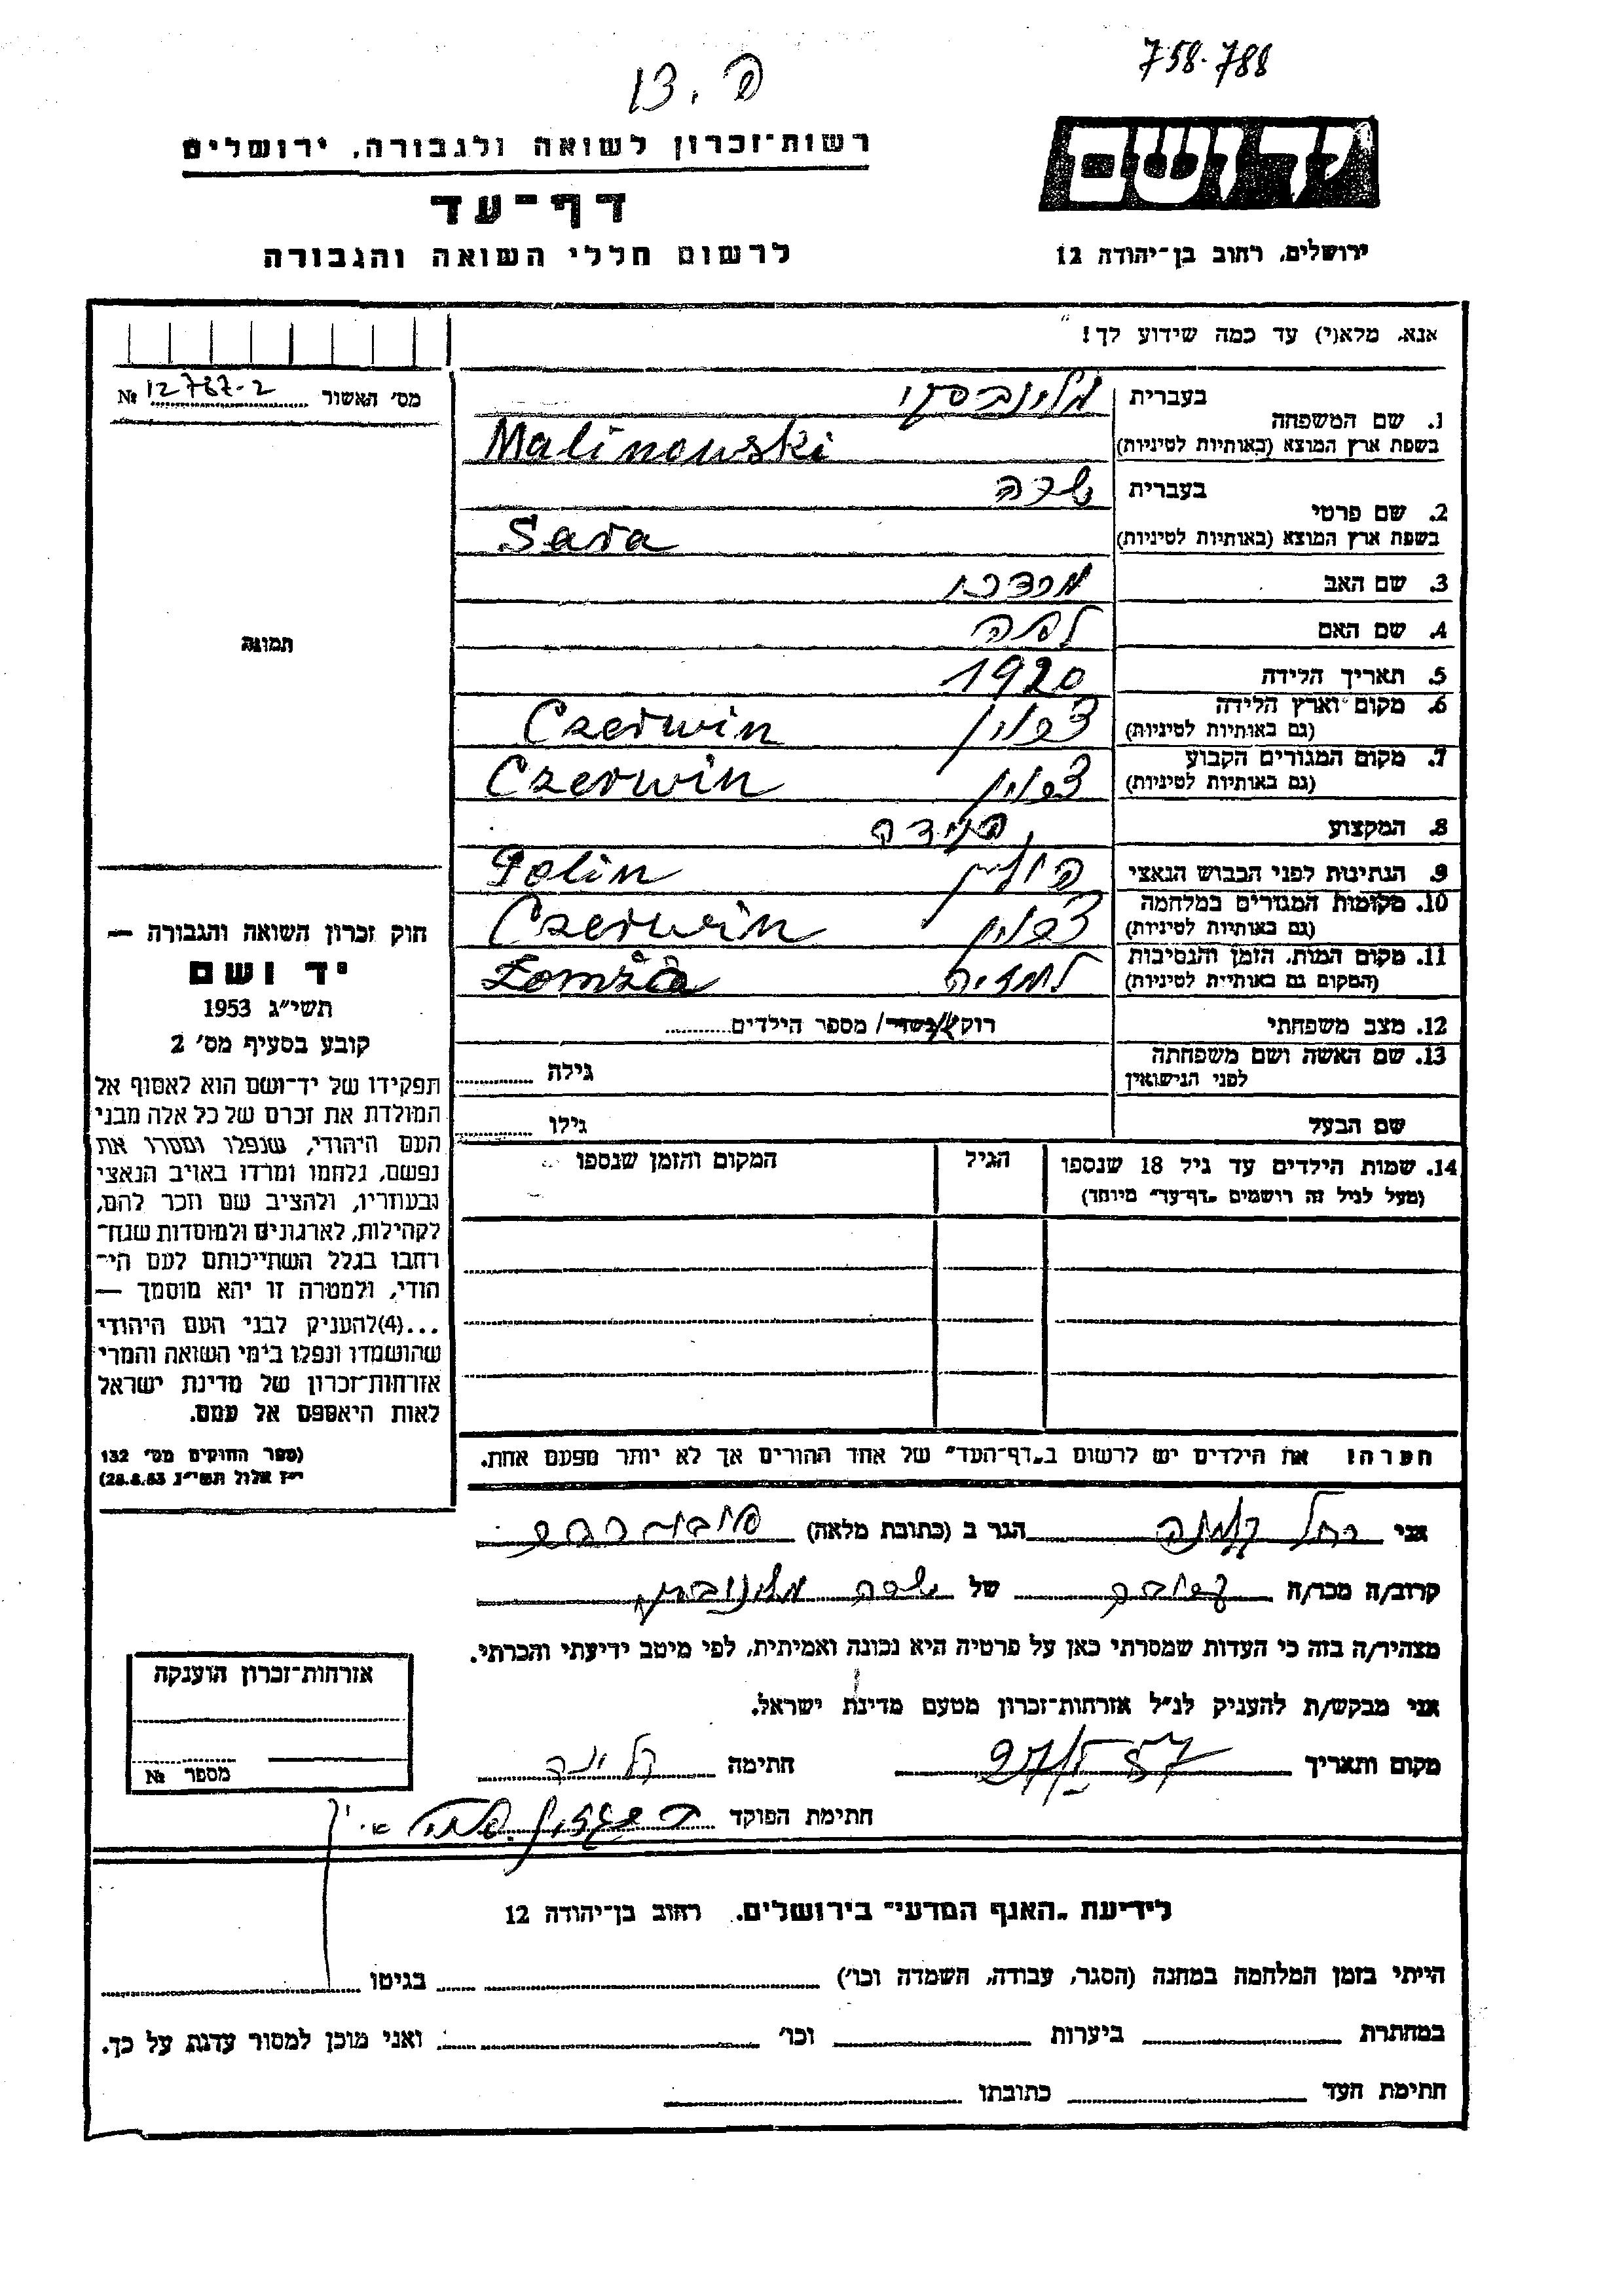 758.788
יד ושם
רשות־זכרון לשואה ולגבורה, ירושלים
דף־עד
לרשום חללי השואה והגבורה
ירושלים, רחוב בן־יהודה 12
אנא, מלא(י) עד כמה שידוע לך!
מס׳ האשור 12787-2 №
1. שם המשפחה
בעברית מלינובסקי
בשפת ארץ המוצא (באותיות לטיניות) Malinowski
2. שם פרטי
בעברית שרה
בשפת ארץ המוצא (באותיות לטיניות) Sara
3. שם האב מרדכי
4. שם האם
5. תאריך הלידה 1920
6. מקום וארץ הלידה
(גם באותיות לטיניות) Czerwin
7. מקום המגורים הקבוע
(גם באותיות לטיניות) Czerwin
8. המקצוע
9. הנתינות לפני הכבוש הנאצי פולין Polin
10. מקומות המגורים במלחמה
(גם באותיות לטיניות) Czerwin
11. מקום המות, הזמן והנסיבות
(המקום גם באותיות לטיניות) Łomża
12. מצב משפחתי רוק/נשוי/ מספר הילדים
13. שם האשה ושם משפחתה
לפני הנישואין
גילה
שם הבעל גילו
14. שמות הילדים עד גיל 18 שנספו
(מעל לגיל זה רושמים „דף־עד״ מיוחד)
הגיל
המקום והזמן שנספו
הערה! את הילדים יש לרשום ב„דף־העד״ של אחד ההורים אך לא יותר מפעם אחת.
תמונה
חוק זכרון השואה והגבורה —
יד ושם
תשי״ג 1953
קובע בסעיף מס׳ 2
תפקידו של יד־ושם הוא לאסוף אל
המולדת את זכרם של כל אלה מבני
העם היהודי, שנפלו ומסרו את
נפשם, נלחמו ומרדו באויב הנאצי
ובעוזריו, ולהציב שם וזכר להם,
לקהילות, לארגונים ולמוסדות שנח־
רחבו בגלל השתייכותם לעם הי־
הודי, ולמטרה זו יהא מוסמך —
...(4)להעניק לבני העם היהודי
שהושמדו ונפלו בימי השואה והמרי
אזרחות־זכרון של מדינת ישראל
לאות היאספם אל עמם.
(ספר החוקים מס׳ 132
י״ז אלול תשי״ג 28.8.53)
אני רחל הגר ב (כתובת מלאה)
קרוב/ה מכר/ה של שרה מלינובסקי
מצהיר/ה בזה כי העדות שמסרתי כאן על פרטיה היא נכונה ואמיתית, לפי מיטב ידיעתי והכרתי.
אני מבקש/ת להעניק לנ״ל אזרחות־זכרון מטעם מדינת ישראל.
מקום ותאריך חתימה
חתימת הפוקד
אזרחות־זכרון הוענקה
מספר №
לידיעת „האגף המדעי״ בירושלים. רחוב בן־יהודה 12
הייתי בזמן המלחמה במחנה (הסגר, עבודה, השמדה וכו׳) בגיטו
במחתרת ביערות וכו׳ ואני מוכן למסור עדות על כך.
חתימת העד כתובתו